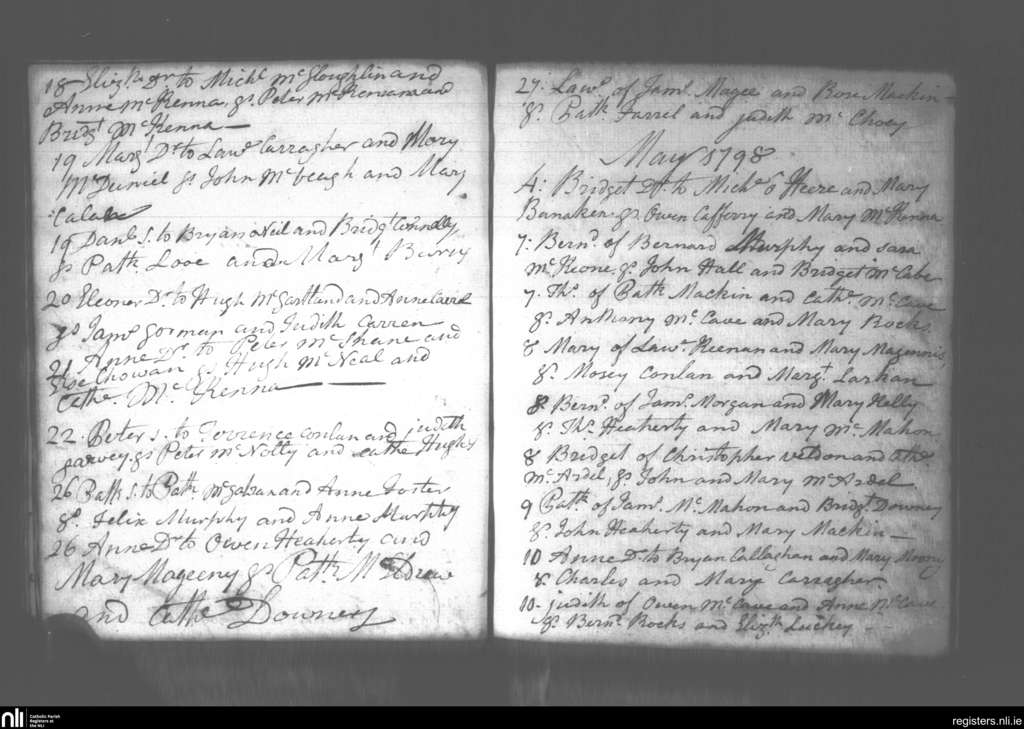 18 Elizth Dr to Michl McGloughlin and
Anne McKenna, gs Peter McKenna and
Bridgt McKenna —
19 Margt Dr to Lawe Carragher and Mary
McDaniel gs John McVeagh and Mary
19 Danl S. to Bryan Neil and Bridgt Connolly
gs Patk Love and Margt
20 Eleoner Dr to Hugh McGartland and Anne
gs Jams Gorman and Judith Carren
21 Anne Dr to Peter McShane and
Rose Chowan gs Hugh McNeal and
Cathe. McKenna —
22. Peter s. to Terrence Conlan and Judith
garvey. gs Peter McNolty and Cathe Hughs
26 Patk S. to Patk McGahan and Anne Foster
gs. Felix Murphy and Anne Murphy
26 Anne Dr to Owen Heaherty and
Mary Mageeny gs Patk
and Cathe Downey
27: Lawe. of Jams. Magee and Rose Mackin
gs. Patk Farrel and Judith Mc
May 1798
4: Bridget Dr to Miche O Heere and Mary
Banaker. gs. Owen Cafferry and Mary McKenna
7: Bernd of Bernard Murphy and sara
McKeone. gs. John Hall and Bridget McCabe
7. Ths. of Patk Mackin and Cathe McCave
gs. Anthony McCave and Mary Rocks.
8 Mary of Lawe. Keenan and Mary Magennis
gs. Mosey Conlan and Margt Larkan
8. Bernd. of Jams. Morgan and Mary Kelly
gs. Ths. Heaherty and Mary McMahon
8 Bridget of Christopher Veldon and Cathe
McArdel, gs. John and Mary McArdel
9 Patk. of Jams. McMahon and Bridgt Downey
gs. John Heaherty and Mary Mackin —
10 Anne Dr to Bryan Callaghan and Mary Moony
gs. Charles and Mary Carragher
10. Judith of Owen McCave and Anne McCave
gs. Bernd. Rocks and Elizth Luckey —
nli
Catholic Parish
Registers at
the NLI
registers.nli.ie